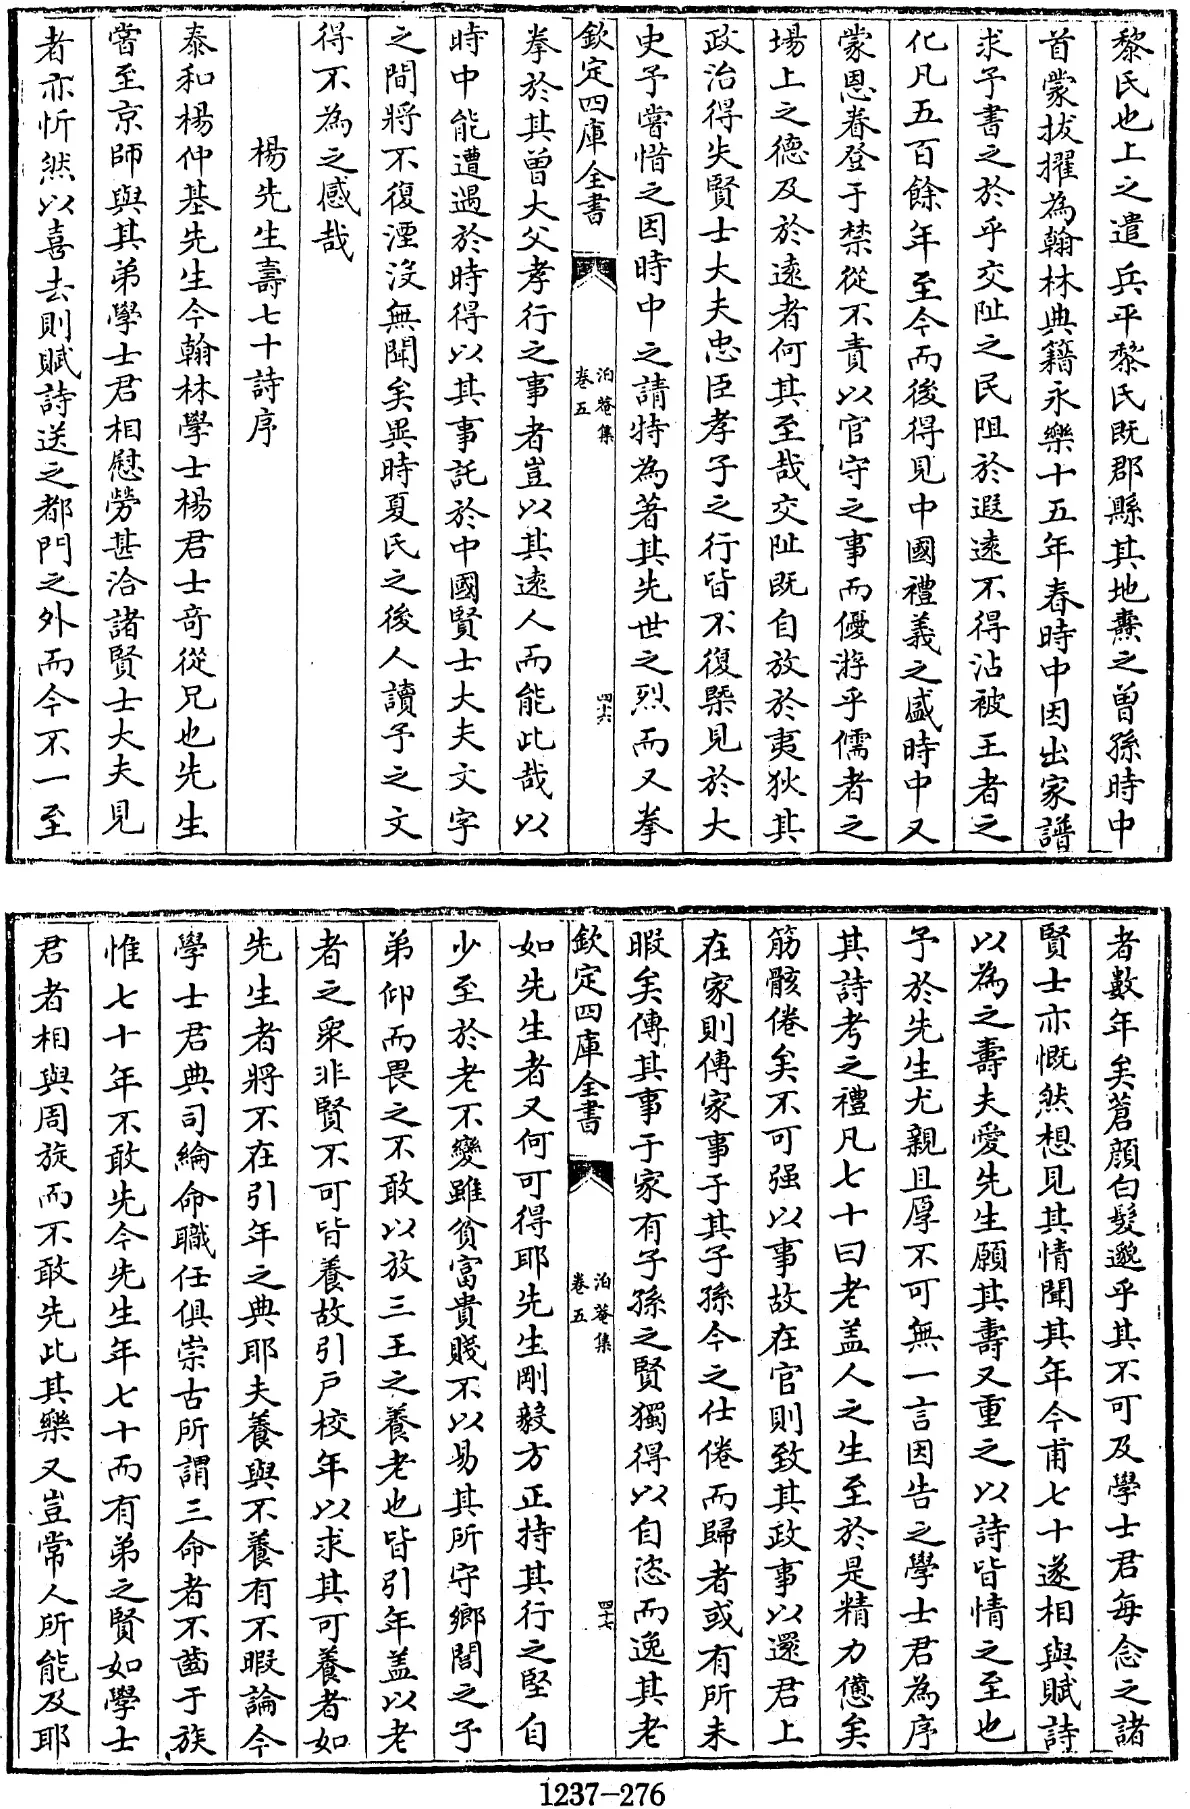 黎氏也上之遣兵平黎氏既郡縣其地燾之曽孫時中
首蒙拔擢為翰林典籍永樂十五年春時中因出家譜
求予書之於乎交阯之民阻於遐逺不得沾被王者之
化凡五百餘年至今而後得見中國禮義之盛時中又
蒙恩眷登于禁從不責以官守之事而優游乎儒者之
場上之德及於逺者何其至哉交阯既自放於夷狄其
政治得失賢士大夫忠臣孝子之行皆不復槩見於大
史予嘗惜之因時中之請特為著其先世之烈而又拳
欽定四庫全書
泊菴集
卷五
四十六
拳於其曽大父孝行之事者豈以其逺人而能此哉以
時中能遭遇於時得以其事託於中國賢士大夫文字
之間將不復湮沒無聞矣異時夏氏之後人讀予之文
得不為之感哉
楊先生壽七十詩序
泰和楊仲基先生今翰林學士楊君士奇從兄也先生
嘗至京師與其弟學士君相慰勞甚洽諸賢士大夫見
者亦忻然以喜去則賦詩送之都門之外而今不一至
者數年矣蒼顔白髮邈乎其不可及學士君每念之諸
賢士亦慨然想見其情聞其年今甫七十遂相與賦詩
以為之壽夫愛先生願其壽又重之以詩皆情之至也
予於先生尤親且厚不可無一言因告之學士君為序
其詩考之禮凡七十曰老盖人之生至於是精力憊矣
筋骸倦矣不可强以事故在官則致其政事以還君上
在家則傳家事于其子孫今之仕倦而歸者或有所未
暇矣傳其事于家有子孫之賢獨得以自恣而逸其老
欽定四庫全書
泊菴集
卷五
四十七
如先生者又何可得耶先生剛毅方正持其行之堅自
少至於老不變雖貧富貴賤不以易其所守鄉閭之子
弟仰而畏之不敢以放三王之養老也皆引年盖以老
者之衆非賢不可皆養故引戸校年以求其可養者如
先生者將不在引年之典耶夫養與不養有不暇論今
學士君典司綸命職任俱崇古所謂三命者不齒于族
惟七十年不敢先今先生年七十而有弟之賢如學士
君者相與周旋而不敢先此其樂又豈常人所能及耶
1237-276